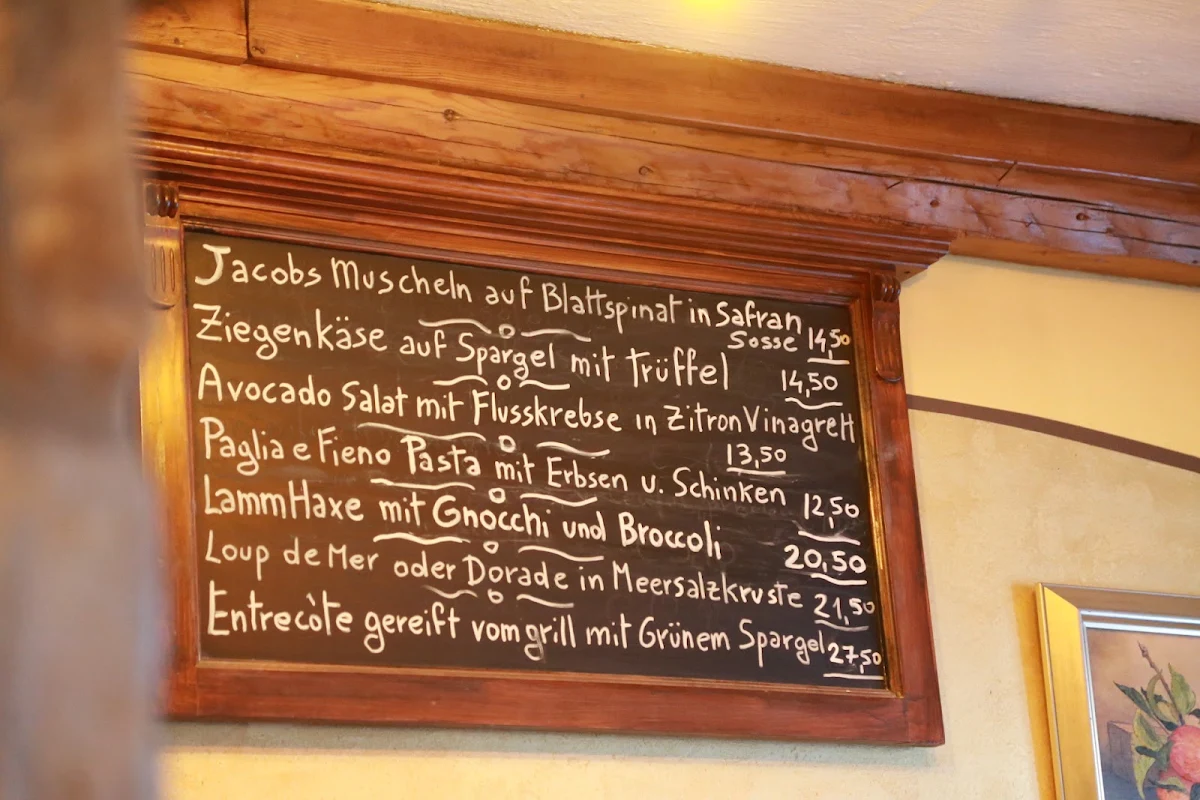 Jacobs Muscheln auf Blattspinat in Safran
Sosse 14,50
Ziegenkäse auf Spargel mit Trüffel 14,50
Avocado Salat mit Flusskrebse in ZitronVinagrett
13,50
Paglia e Fieno Pasta mit Erbsen u. Schinken 12,50
LammHaxe mit Gnocchi und Broccoli 20,50
Loup de Mer oder Dorade in Meersalzkruste 21,50
Entrecòte gereift vom grill mit Grünem Spargel 27,50